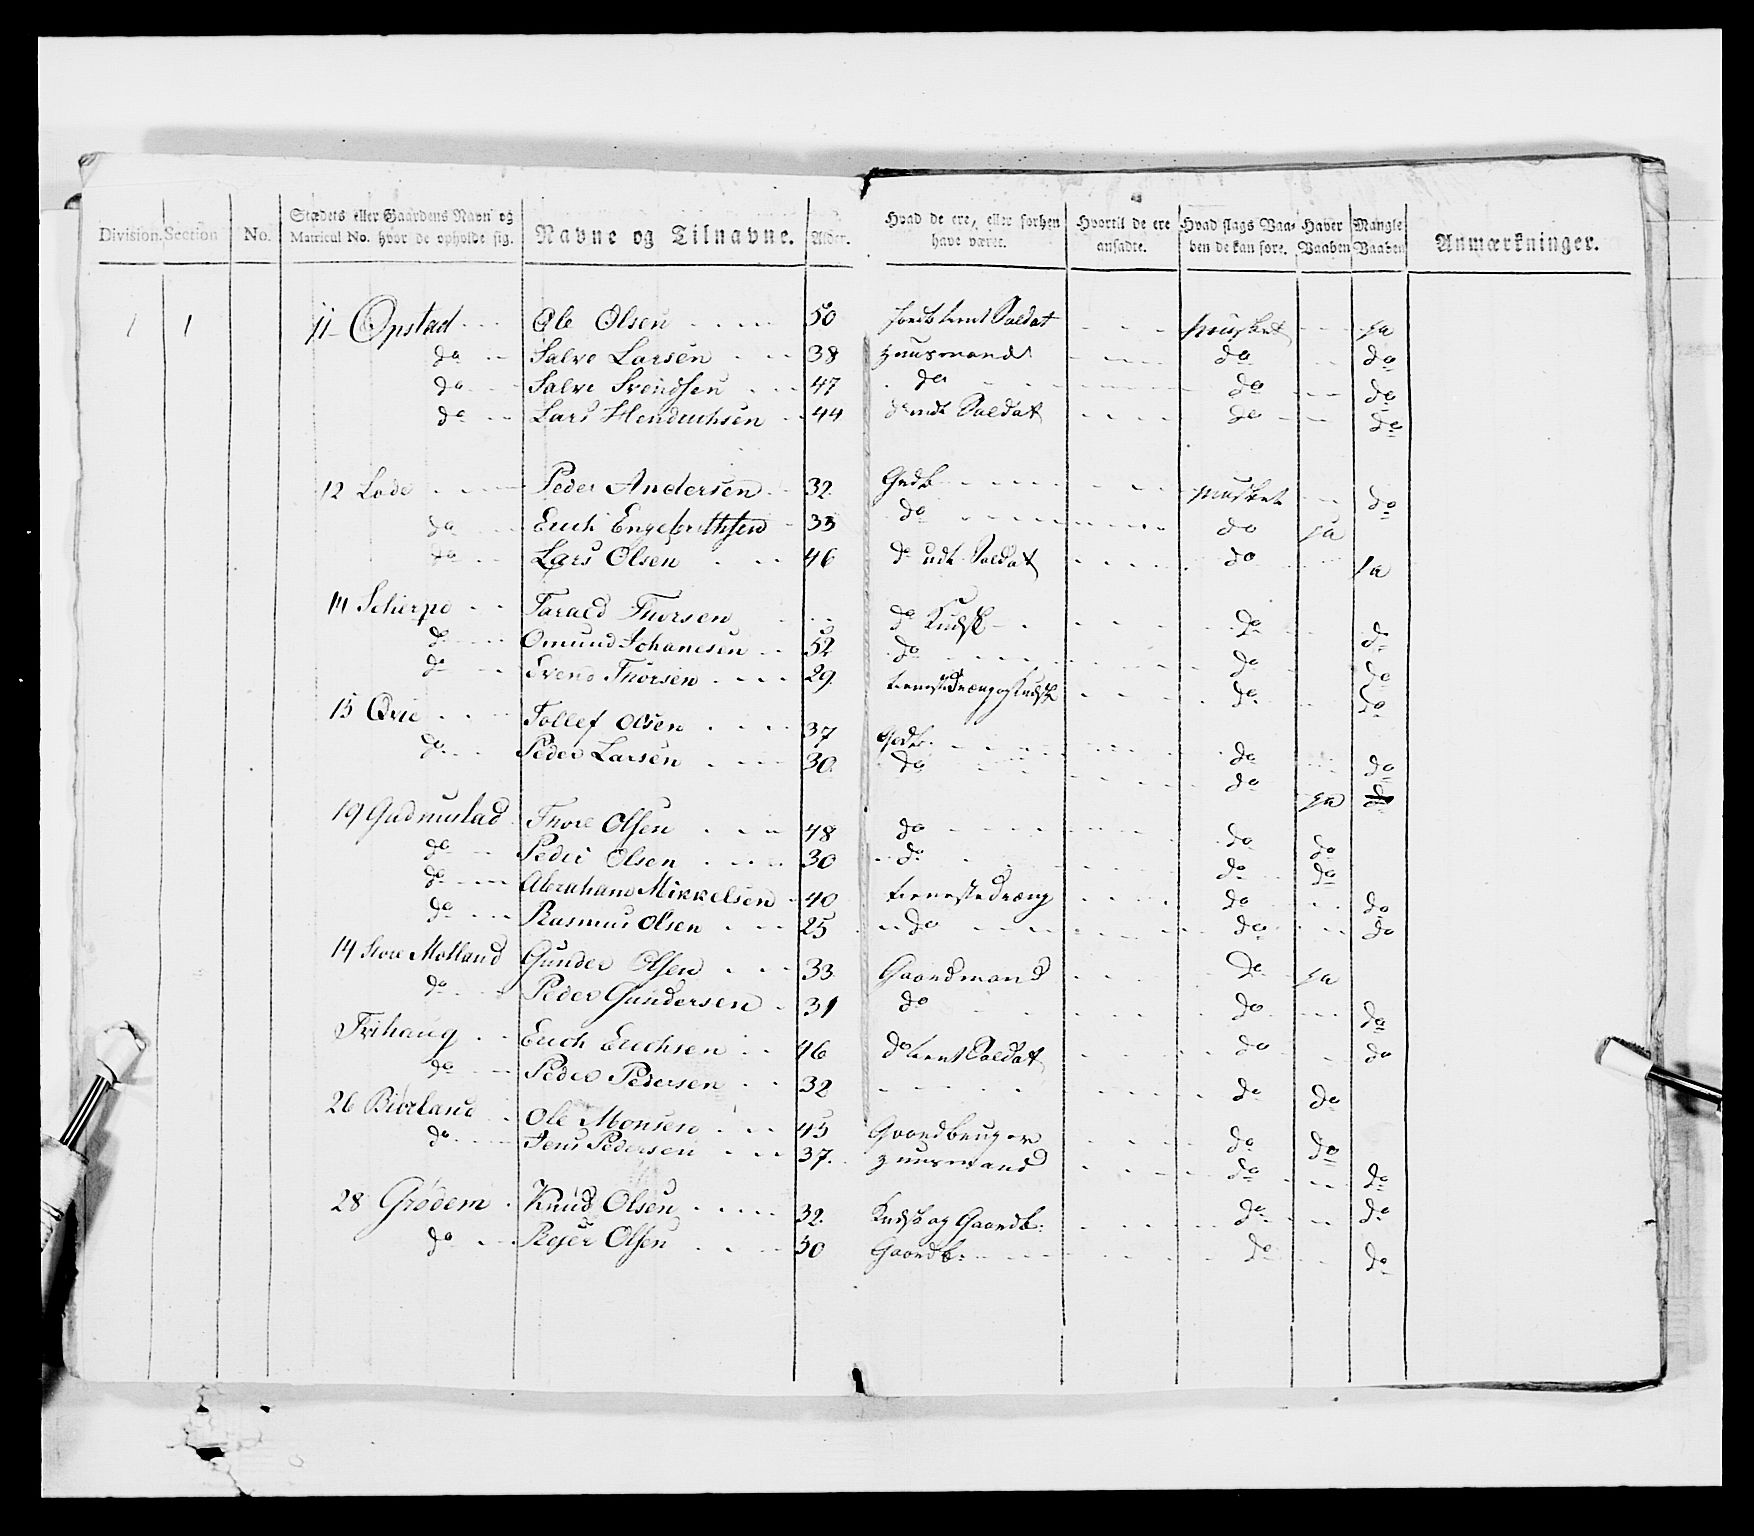 Division. Section No. Stædets eller Gaardens Navn og Matricul No. hvor de opholde sig. Navne og Tilnavne. Alder. Hvad de ere, eller forhen have været. Hvortil de ere ansadte. Hvad slags Vaaben de kan føre. Haver Vaaben Mangle Vaaben Anmærkninger.
1 1 11 Opstad Ole Olsen 50 Soldat Musket Ja
do Salve Larsen 38 Huusmand do do
do Salve Svendsen 47 do do do
do Lars Hendrichsen 44 do udt Soldat do do
12 Lode Peder Andersen 32. Grdb Musket do
do Erich Engebrethsen 33 do do Ja
do Lars Olsen 46 do udt Soldat do Ja
14 Scherpe Tarald Thorsen do Kudsk do do
do Omund Johanesen 52 do do do
do Svend Thorsen 29. do do
15 Qvie Tollef Olsen 37 Grdb. do do
do Peder Larsen 30. do do Ja do
19 Gudmestad Thore Olsen 48 do do do
do Peder Olsen 30 do do do
do Abraham Mikkelsen 40 tienestedreng do do
do Rasmus Olsen 25 do do do
14 Store Motland Gunder Olsen 33. Gaardmand do Ja
do Peder Gundersen 31 do do do
Tvihaug Erich Erichsen 46 do tient Soldat do do
do Peder Pedersen 32 do do
26 Biorland Ole Monsen 45 Gaardbruger do do
do Jens Pedersen 37. Huusmand do do
28 Grødem Knud Olsen 32. Kudsk og Gaardb. do do
do Rejer Olsen 30 Gaardb. do do